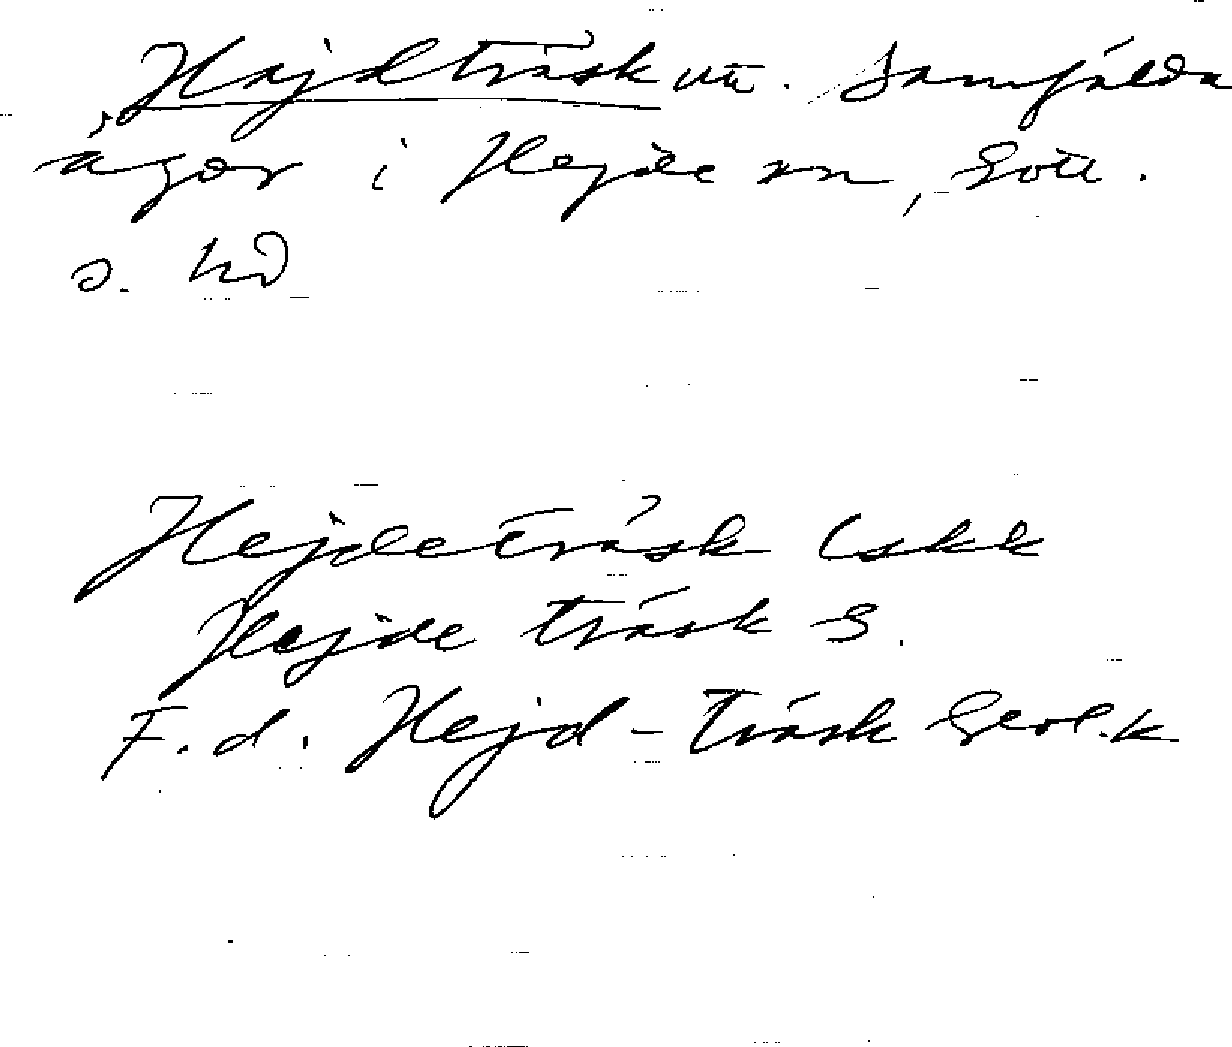 Hajdträsk vtn. Samfällda
ägor i Hejde sn, Gotl.
s. hd
Hejdeträsk Eskk
Hejde träsk G.
F.d. Hejd-träsk Geol.k